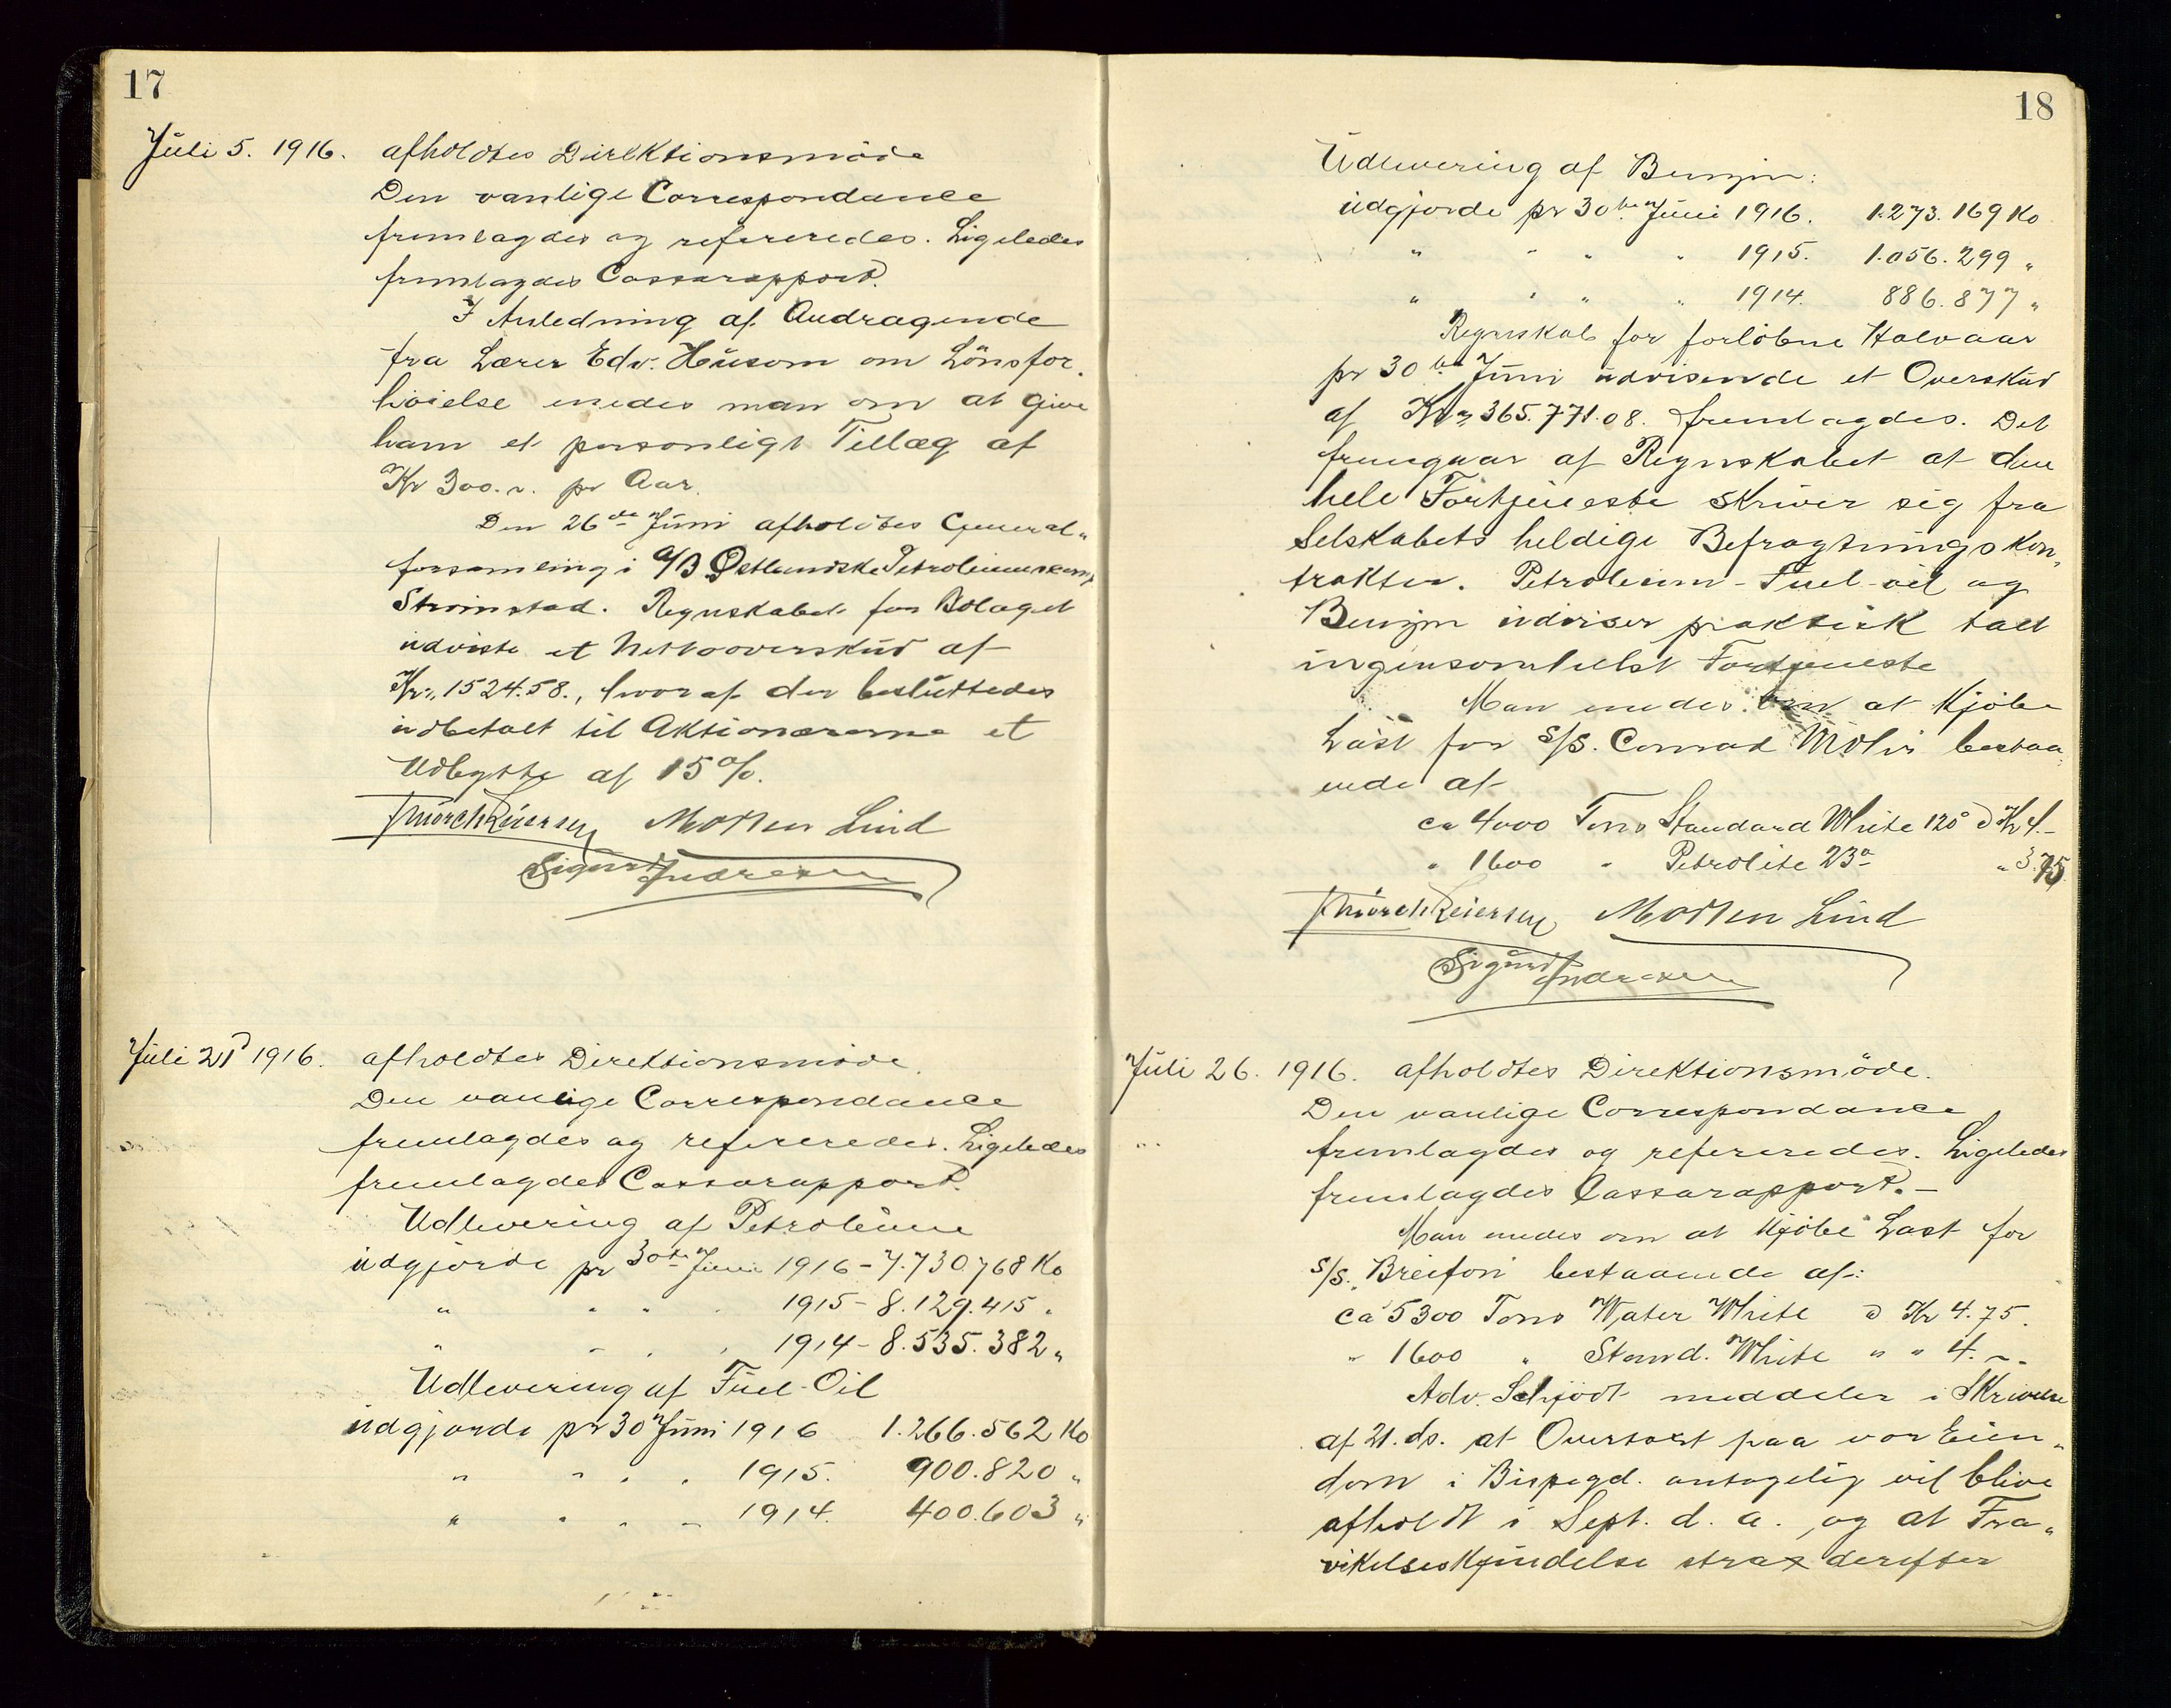 17
Juli 5. 1916. afholdtes Direktionsmöde
Den vanlige Correspondance
fremlagdes og refereredes. Ligeledes
fremlagdes Cassarapport.
I Anledning af Andragende
fra Lærer Edv. Husom om Lönsfor-
höielse enedes man om at give
ham et personligt Tillæg af
Kr 300.- pr Aar.
Den 26de Juni afholdtes General-
forsamling i A/B Östlundske Petroleumskomp
Strömstad. Regnskabet for Bolaget
udviste et Nettooverskud af
Kr. 1524.58., hvoraf der besluttedes
udbetalt til Aktionærerne et
Udbytte af 15%.
Thürch Reiersen Morten Lind
Sigurd Andresen
Juli 21 1916. afholdtes Direktionsmöde.
Den vanlige Correspondance
fremlagdes og refereredes. Ligeledes
fremlagdes Cassarapport.
Udlevering af Petroleum
udgjorde pr 30te Juni 1916 - 7.730.768 Ko
" " " " 1915 - 8.129.415 "
" " " " 1914 - 8.535.382 "
Udlevering af Fuel-Oil
udgjorde pr 30 Juni 1916 1.266.562 Ko
" " " " 1915. 900.820 "
" " " " 1914. 400.603 "
18
Udlevering af Benzin:
udgjorde pr 30te Juni 1916. 1.273.169 Ko
" " " " 1915. 1.056.299 "
" " " " 1914. 886.877 "
Regnskab for forløbne Halvaar
pr 30te Juni udvisende et Overskud
af Kr. 365.771.08. fremlagdes. Det
fremgaar af Regnskabet at den
hele Fortjeneste skriver sig fra
Selskabets heldige Befragtningskon-
trakter. Petroleum - Fuel-oil og
Benzin udviser praktisk talt
ingensomhelst Fortjeneste
Man enedes om at Kjöbe
Last for S/S. Conrad Mohr bestaa-
ende af
ca 4000 Tons Standard White 120° à Kr 4.-
" 1600 " Petrolite 23° " 3.75
Thürch Reiersen Morten Lind
Sigurd Andresen
Juli 26. 1916. afholdtes Direktionsmöde.
Den vanlige Correspondance
fremlagdes og refereredes. Ligeledes
fremlagdes Cassarapport. -
Man enedes om at Kjöbe Last for
S/S. Breifon bestaaende af:
ca 5300 Tons Water White à Kr 4.75.
" 1600 " Stand. White " " 4. -.
Adv. Schjödt meddeler i Skrivelse
af 21. ds. at Overtaxt paa vor Eien-
dom i Bispegd. antagelig vil blive
afholdt i Sept. d. a., og at Fra-
vikelseskjendelse strax derefter